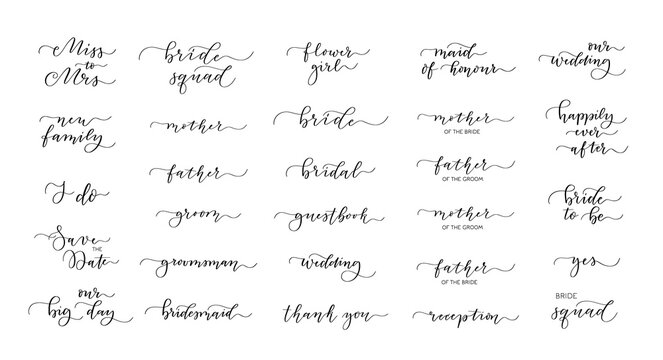 Miss
to
Mrs
new
family
I do
Save
THE
Date
our
big day
bride
squad
mother
father
groom
groomsman
bridesmaid
flower
girl
bride
bridal
guestbook
wedding
thank you
maid
of honour
mother
OF THE BRIDE
father
OF THE GROOM
mother
OF THE GROOM
father
OF THE BRIDE
reception
our
wedding
happily
ever
after
bride
to be
yes
BRIDE
squad